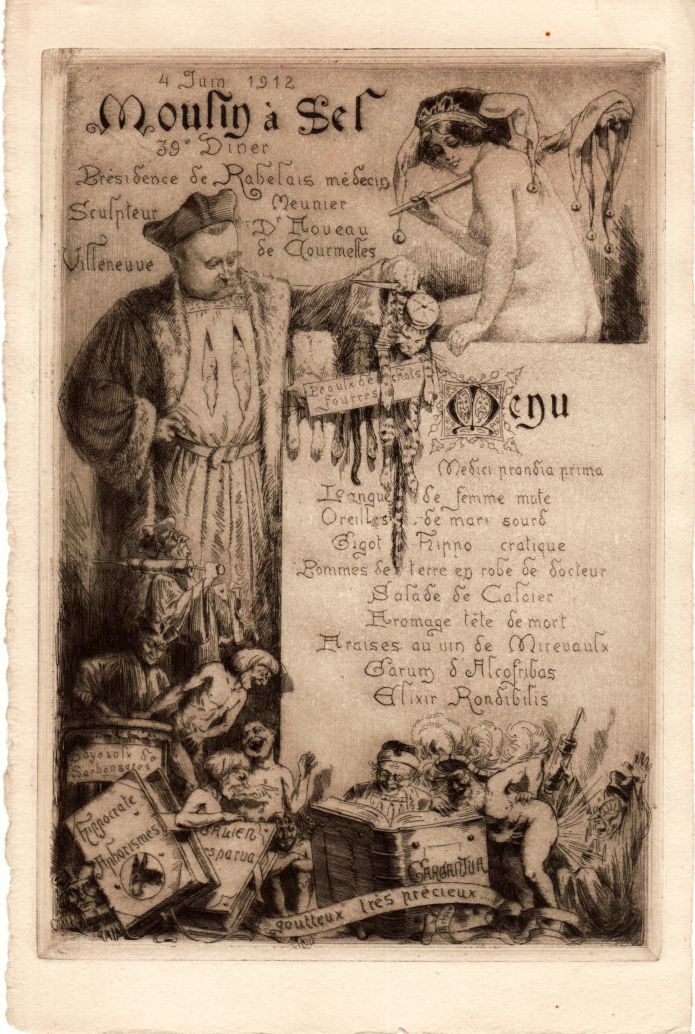 4 Juin 1912
Moulin à Sel
39e Diner
Présidence de Rabelais médecin
Sculpteur Meunier
Villeneuve Dr Foveau
de Courmelles
Peaulx de chats
fourres
Menu
Medici prandia prima
Langue de femme mute
Oreilles de mari sourd
Gigot Hippo cratique
Pommes de terre en robe de docteur
Salade de Caloier
Fromage tête de mort
Fraises au vin de Mirevaulx
Garum d'Alcofribas
Elixir Rondibilis
Boyeaulx de
Sorbonagres
Hippocrate
Aphorismes
GALIEN
Ars parva
GARGANTUA
goutteux très précieux...